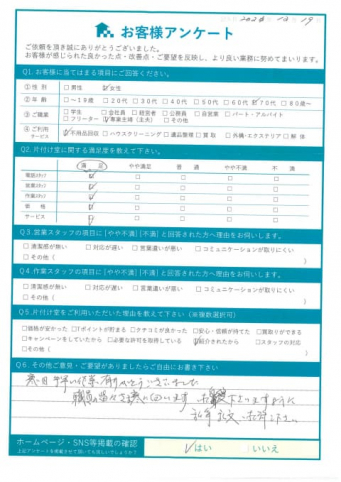 お客様アンケート
ご依頼を頂き誠にありがとうございました。
お客様が感じられた良かった点・改善点・ご要望を反映し、より良い業務に努めてまいります。
Q1.お客様に当てはまる項目にご回答ください。
① 性 別 □男性 ☑女性
② 年 齢 □〜19歳 □20代 □30代 □40代 □50代 □60代 ☑70代 □80歳〜
③ ご職業 □学生 □会社員 □経営者 □公務員 □自営業 □パート・アルバイト
□フリーター ☑専業主婦（主夫） □その他（ ）
④ ご利用サービス ☑不用品回収 □ハウスクリーニング □遺品整理 □買取 □外構・エクステリア □解体
Q2.片付け堂に関する満足度を教えて下さい。
満 足 やや満足 普 通 やや不満 不 満
電話受け ☑ □ □ □ □
営業受け ☑ □ □ □ □
作業受け ☑ □ □ □ □
価 格 ☑ □ □ □ □
サービス ☑ □ □ □ □
Q3.営業スタッフの項目に[やや不満][不満]と回答された方へ理由をお伺いします。
□清潔感が無い □対応が遅い □言葉遣いが悪い □コミュニケーションが取りにくい
□その他（ ）
Q4.作業スタッフの項目に[やや不満][不満]と回答された方へ理由をお伺いします。
□清潔感が無い □対応が遅い □言葉遣いが悪い □コミュニケーションが取りにくい
□その他（ ）
Q5.片付け堂をご利用いただいた理由を教えて下さい（※複数選択可）
□価格が安かった □Tポイントが貯まる □クチコミが良かった □安心・信頼が持てた □買取りができる
□キャンペーンをしていたから □必要な許可を取得している ☑紹介されたから □スタッフの対応
□その他（ ）
Q6.その他ご意見・ご要望がありましたらご自由にお書き下さい
ありがとうございました
ホームページ・SNS等掲載の確認
上記アンケートを掲載させて頂いても宜しいでしょうか？
☑はい いいえ